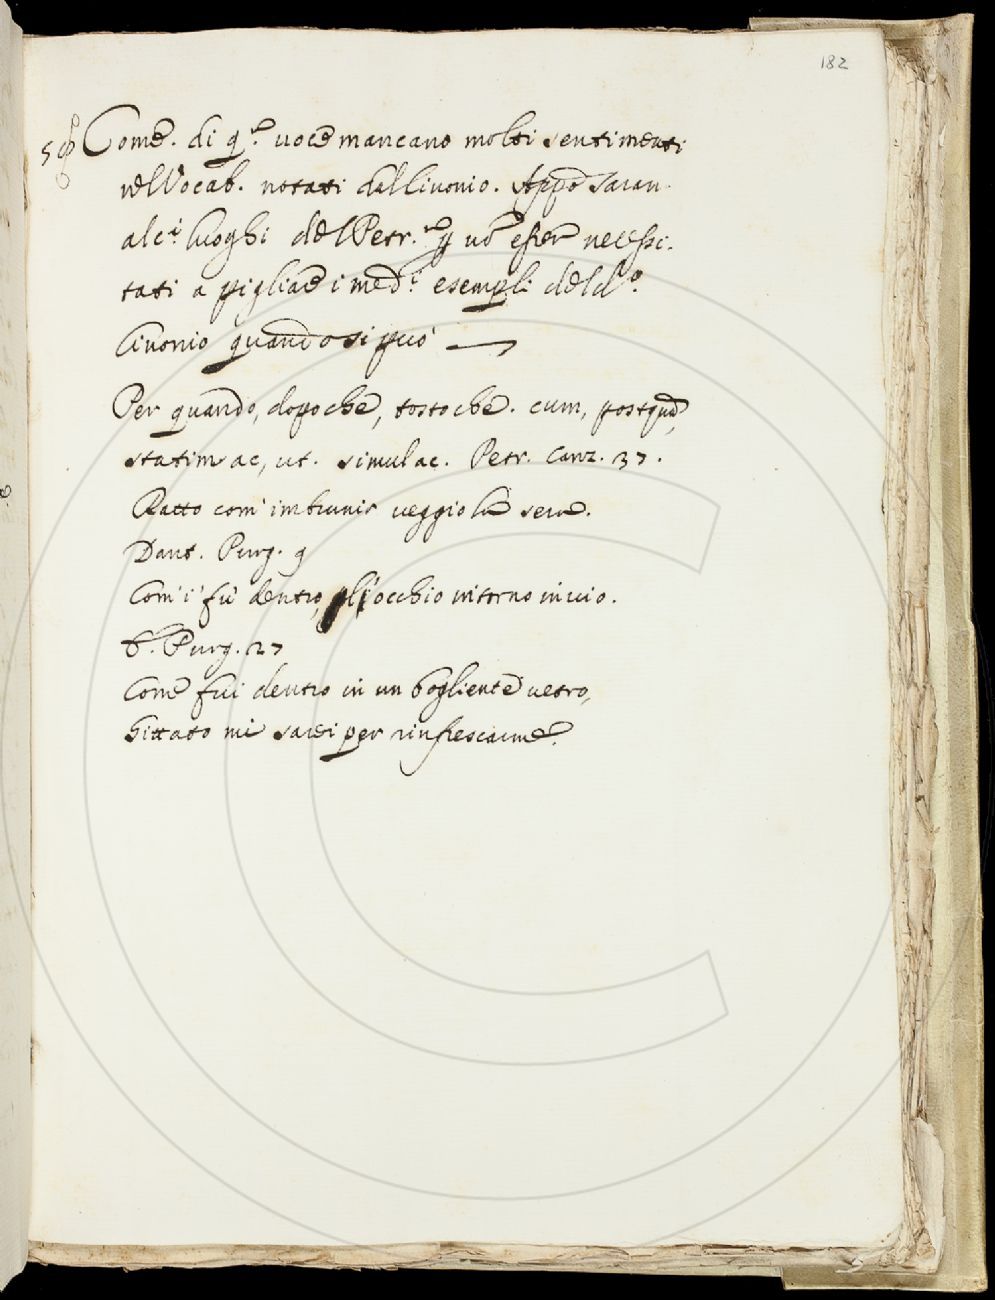 182
Come. di q.ta uoce mancano molti sentimenti
nel Vocab. notati dal Cinonio. Appo saran.
alc.i luoghi del Petr. p nō esser necessi.
tati a pigliare i med.i esempli del d.o
Cinonio quando si può
Per quando, dopoche, tostoche. cum, postquā,
statim ac, ut. simulac. Petr. Canz. 37.
Ratto com' imbrunir veggio la sera.
Dant. Purg. 9
Com' i' fu' dentro, gli occhio intorno inuio.
t. Purg. 27
Come fui dentro in un bogliente uetro,
Gittato mi sarei per rinfrescarme.